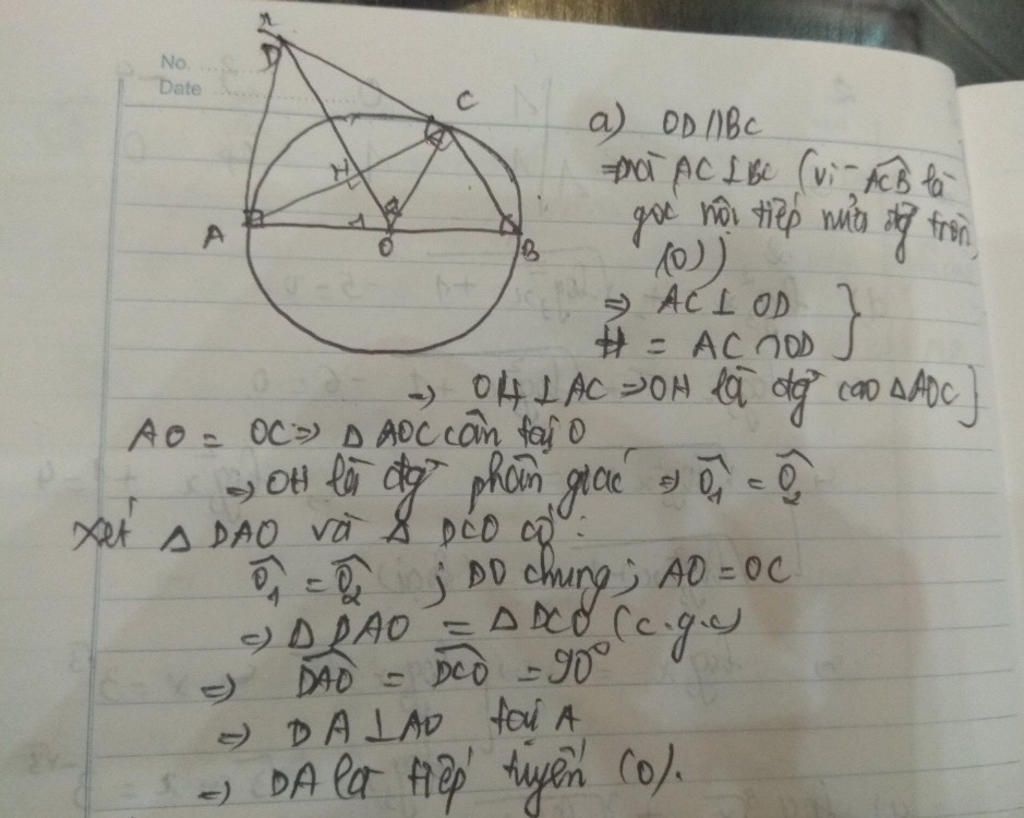 No.
Date
x
D
C
H
A
1
O
B
a) OD//BC
⇒ mà AC⊥BC (vì ACB là
góc nội tiếp nửa đg tròn
(O))
⇒ AC ⊥ OD
H = AC ∩ OD
⇒ OH ⊥ AC ⇒ OH là đg cao △AOC
AO = OC ⇒ △AOC cân tại O
⇒ OH là đg phân giác ⇒ O₁ = O₂
Xét △ DAO và △ DCO có:
O₁ = O₂ ; DO chung; AO = OC
⇒ △ DAO = △ DCO (c.g.c)
⇒ DAO = DCO = 90°
⇒ DA ⊥ AO tại A
⇒ DA là tiếp tuyến (O).